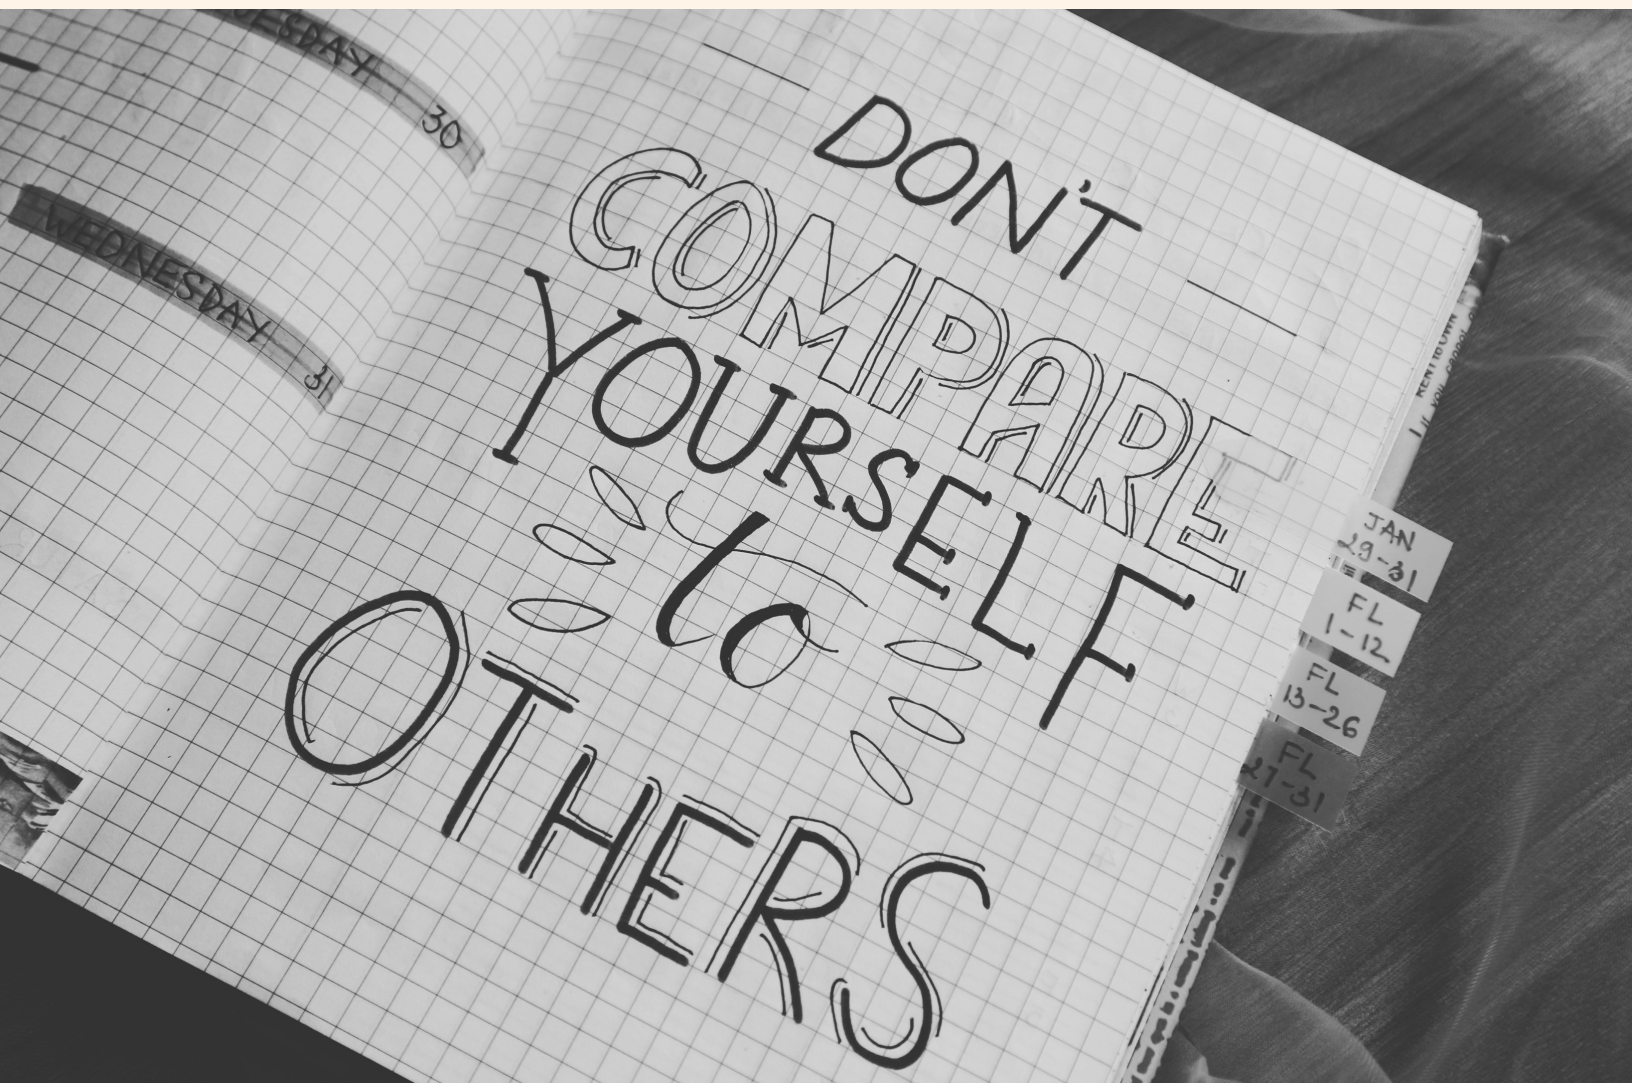 TUESDAY 30
WEDNESDAY 31
DON'T
COMPARE
YOURSELF
to
OTHERS
JAN
29-31
FL
1-12
FL
13-26
FL
27-31
RENT to OWN